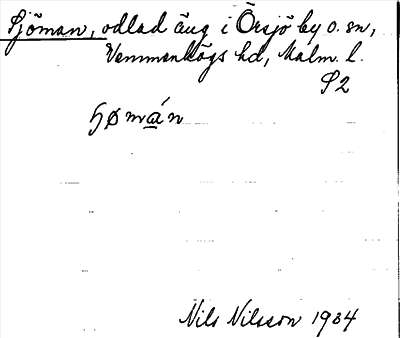 Sjöman, odlad äng i Örsjö by o. sn,
Vemmenhögs hd, Malm. l.
S2
ɧømán
Nils Nilsson 1934